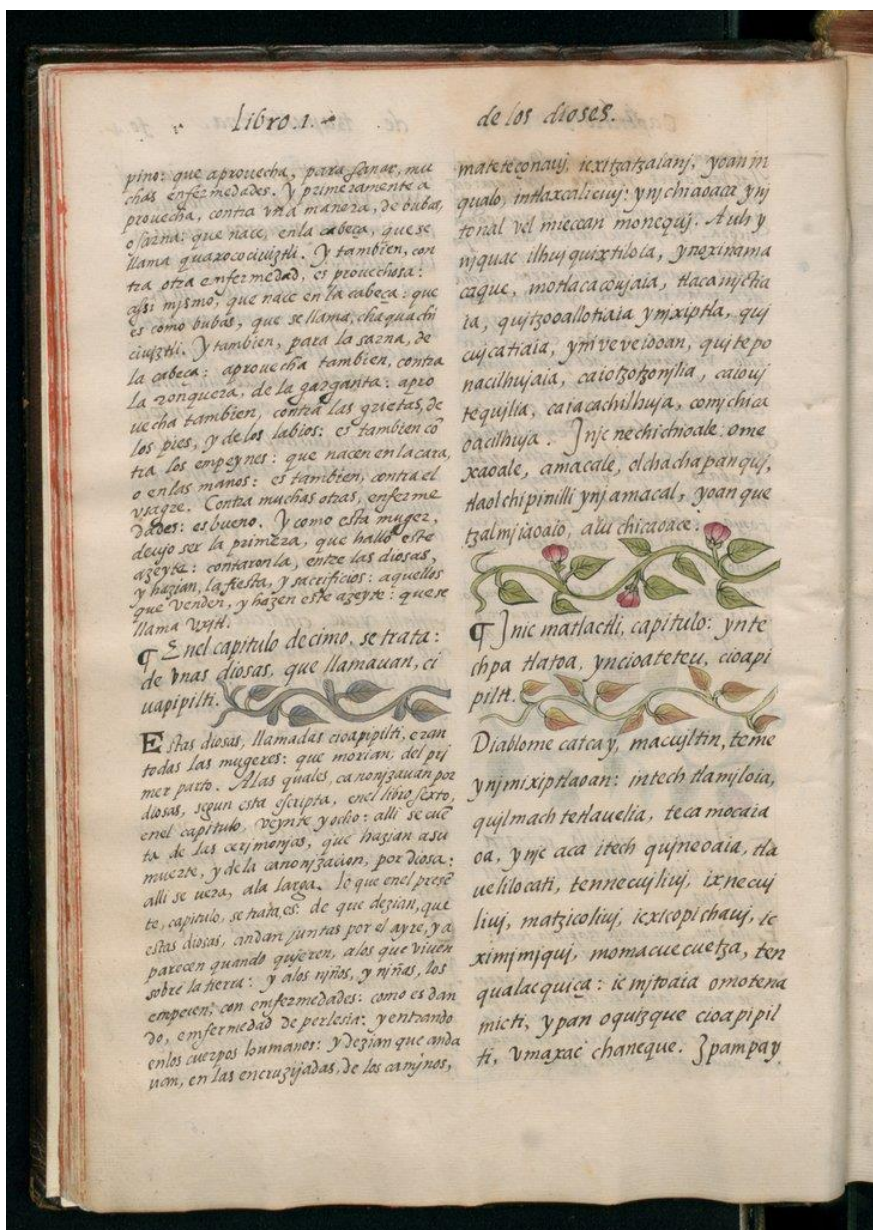 Libro .1.
de los dioses.
pino: que aprovecha, para sanar, mu
chas enfermedades. Y primeramente a
provecha, contra vna manera, de bubas,
o sarna: que nace, en la cabeça, que se
llama quaxocociviztli. Y tambien, con
tra otra enfermedad, es provechosa:
assi mjsmo, que nace en la cabeça: que
es como bubas, que se llama, chaquachi
ciujztli. Y tambien, para la sarna, de
la cabeça: aprovecha tambien, contra
la ronquera, de la garganta: apro
vecha tambien, contra las grietas, de
los pies, y de los labios: es tambien cõ
tra los empeynes: que nacen en la cara,
o en las manos: es tambien, contra el
vsagre. Contra muchas otras, enferme
dades: es bueno. Y como esta muger,
devio ser la primera, que hallo este
azeyte: contaronla, entre las diosas,
y hazian, la fiesta, y sacrificios: aquellos
que venden, y hazen este azeyte: que se
llama vxitl.
¶ En el capitulo decimo, se trata:
de vnas diosas, que llamauan, ci
uapipilti.
Estas diosas, llamadas cioapipilti, eran
todas las mugeres: que morian, del pri
mer parto. A las quales, canonjzauan por
diosas, segun esta escripta, en el libro sexto,
en el capitulo, veynte y ocho: alli se cuẽ
ta de las cerimonjas, que hazian a su
muerte, y de la canonjzacion, por diosa:
alli se vera, a la larga. Lo que en el presẽ
te, capitulo, se trata es: de que dezian, que
estas diosas, andan juntas por el ayre, y a
parecen quando qujeren, a los que viven
sobre la tierra: y a los niños, y niñas, los
empecen, con enfermedades: como es dan
do, enfermedad de perlesia: y entrando
en los cuerpos humanos: y dezian que anda
uan, en las encruzijadas, de los camjnos,
mateteconauj, icxitzatzaianj, yoan in
qualo, intlaxcalicivj: ynj chiaoaca ynj
tonal vel mieccan monequj. Auh y
njquac ilhuj quixtilola, ynoxinama
caque, motlacacoujaia, tlacamjctia
ia, quitzooallotiaia ymixiptla, quj
cujcatiaia, ym veveiooan, qui tepo
nacilhujaia, caiotzotzonjlia, caiouj
tequilia, caiacachilhuja, comjchica
oacilhuja. Injc nechichioale: ome
xaoale, amacale, olchachapanquj,
tlaolchipinilli ynj amacal, yoan que
tzalmjiaoaio, aiuchicaoace.
¶ Injc matlactli, capitulo: ynte
chpa tlatoa, yncioateteu, cioapi
pilti.
Diablome catcay, macujltin, teme
ynjmixiptlaoan: intech tlamjloia,
qujlmach tetlauelia, teca mocaia
oa, ynjc aca itech qujneoaia, tla
uelilocati, tennecujliuj, ixnecuj
liuj, matzicoliuj, icxicopichauj, ic
ximjmjqui, momacuecuetza, ten
qualacquiça: ic mjtoaia omotena
micti, ypan oquizque cioapipil
ti, vmaxac chaneque. Ipampay